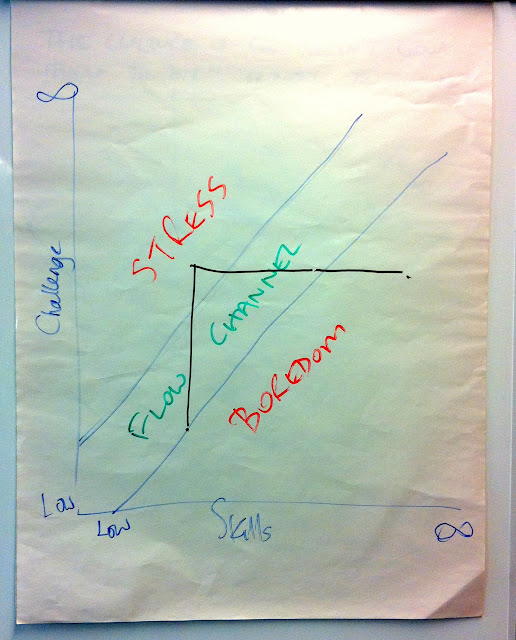 ∞
STRESS
Challenge
FLOW CHANNEL
BOREDOM
Low
Low
Skills
∞